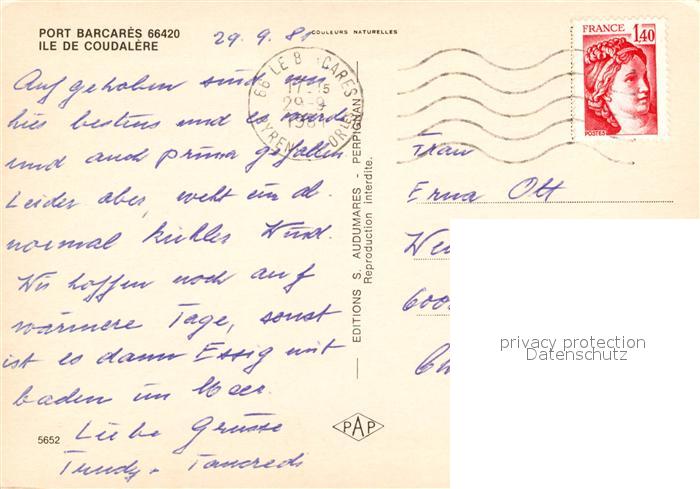 PORT BARCARÈS 66420
ILE DE COUDALÈRE
29.9.81
COULEURS NATURELLES
Aufgehoben sind wir
hier bestens und es würde
und auch prima gefallen.
Leider aber weht ein ab-
normal kühler Wind.
Wir hoffen noch auf
wärmere Tage, sonst
ist es dann Essig mit
baden im Meer.
Liebe Grüsse
Trudy + Tancredi
5652
EDITIONS S. AUDUMARES - PERPIGNAN
Reproduction interdite.
PAP
66 LE BARCARES
17-15
29-9
1981
PYRENEES ORLES
FRANCE
1,40
POSTES
Frau
Erna Ott
600
privacy protection
Datenschutz